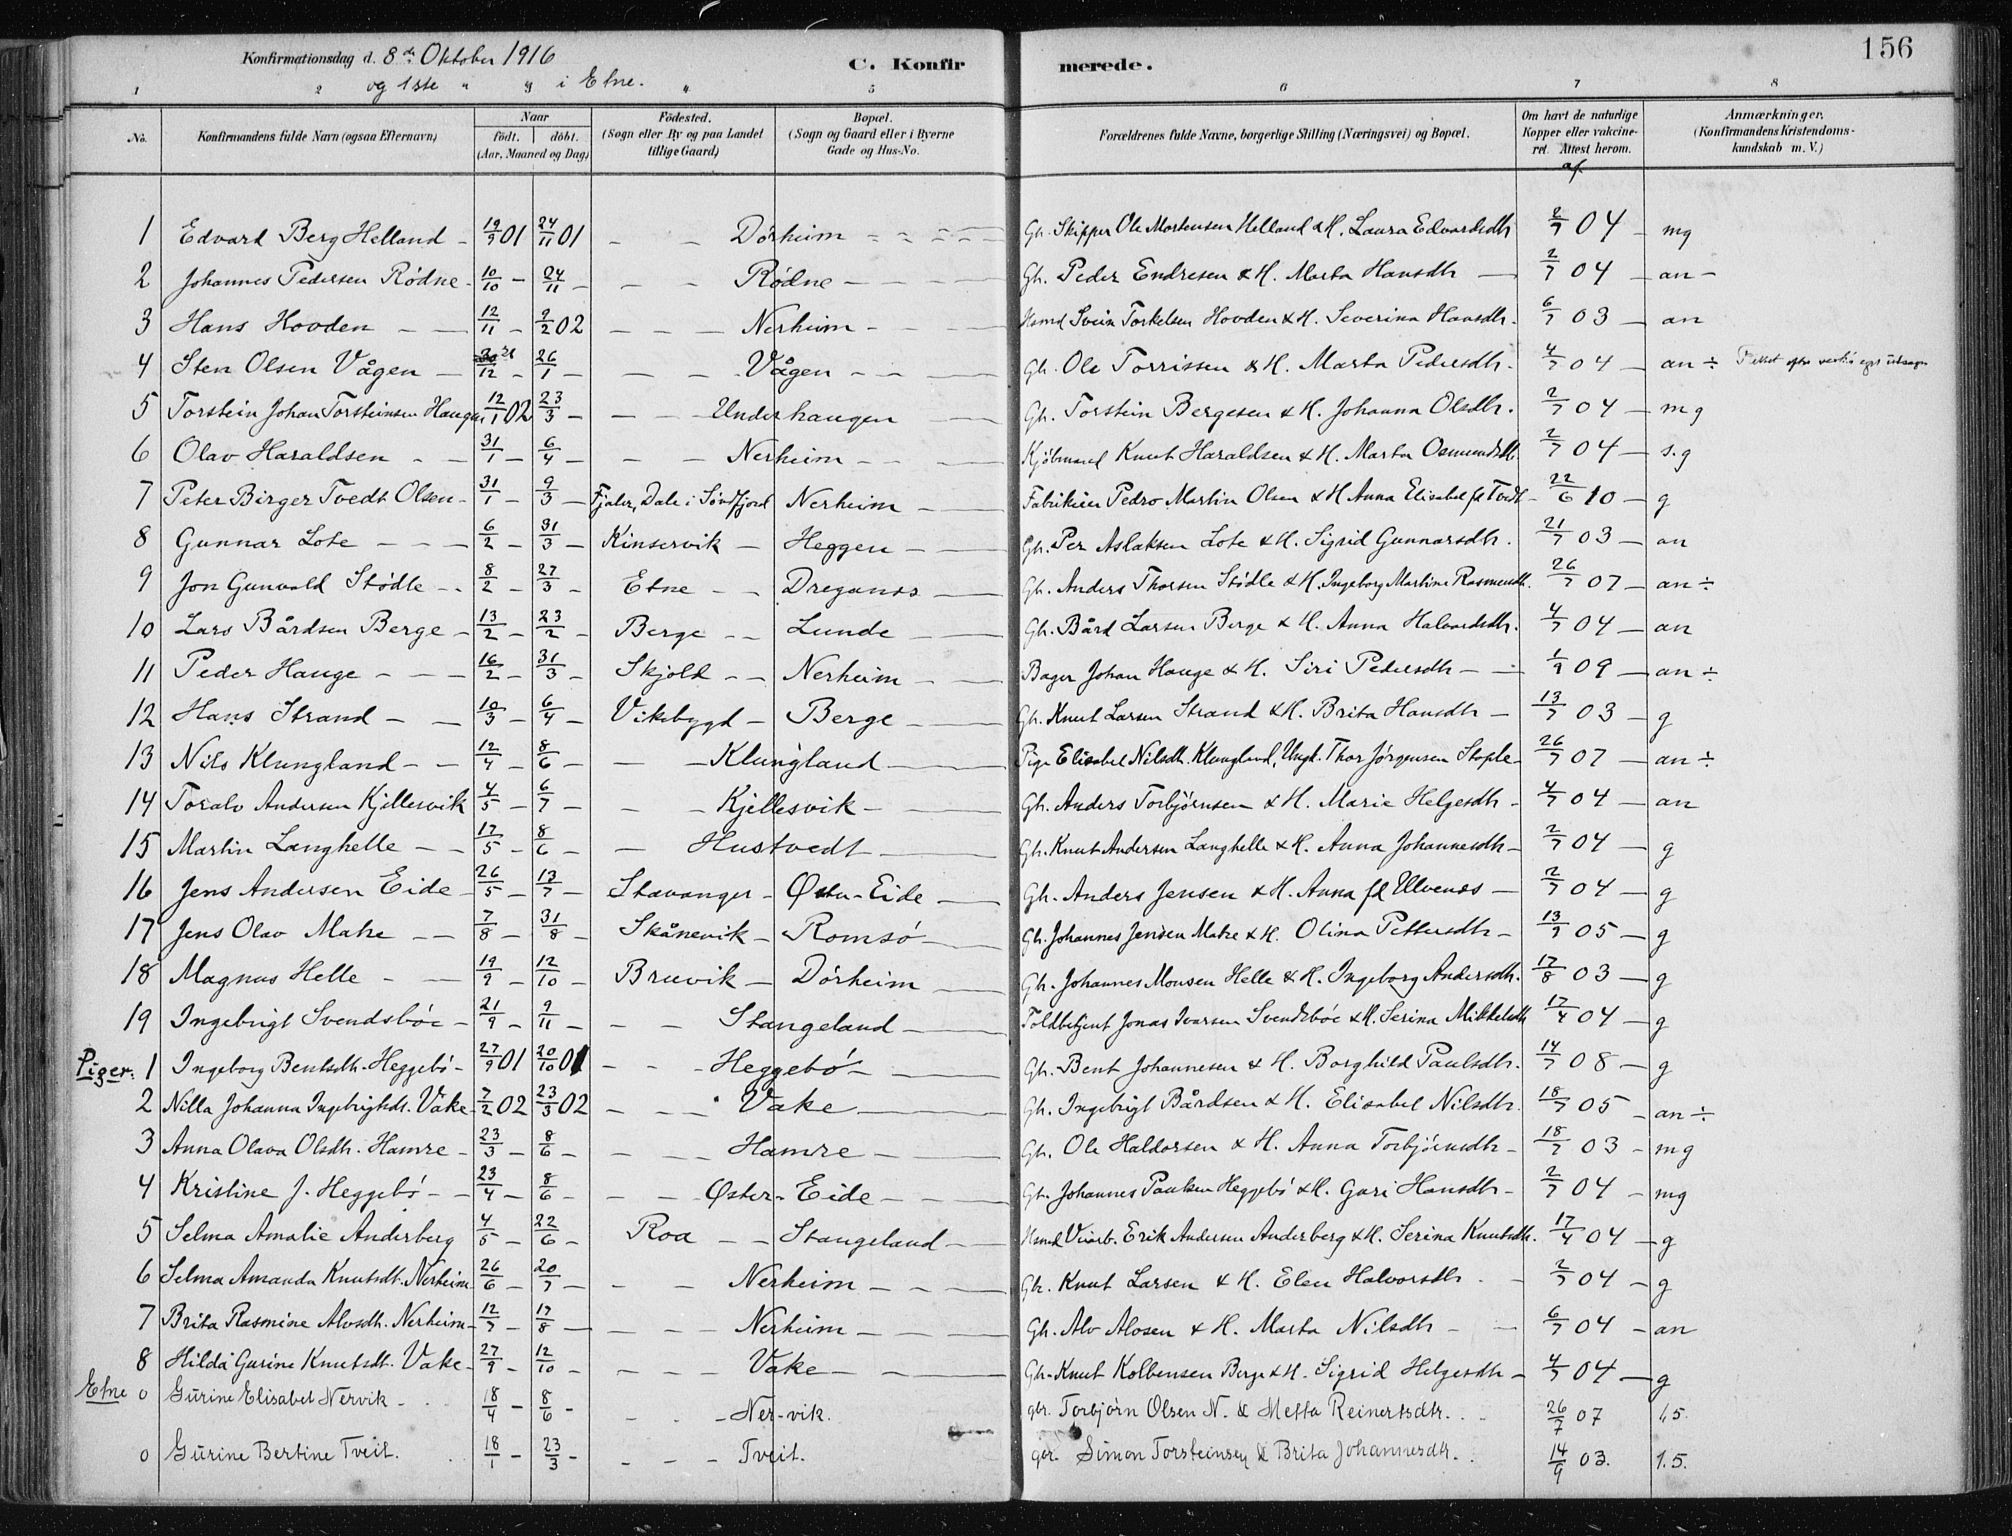 156
Konfirmationsdag d. 8de Oktober 1916 C. Konfirmerede.
og 1ste " " i Etne.
1 2 3 4 5 6 7 8
No. Konfirmandens fulde Navn (ogsaa Efternavn) Naar født. døbt. (Aar, Maaned og Dag) Fødested. (Sogn eller By og paa Landet tillige Gaard) Bopæl. (Sogn og Gaard eller i Byerne Gade og Hus-No. Forældrenes fulde Navne, borgerlige Stilling (Næringsvei) og Bopæl. Om havt de naturlige Kopper eller vakcineret. Attest herom. af. Anmærkninger. (Konfirmandens Kristendomskundskab m. V.)
1 Edvard Berg Helland - 19/9 01 24/11 01 - - Dørheim - - Gb. Skipper Ole Mortensen Helland & H. Laura Edvardsdtr 2/7 04 - mg
2 Johannes Pedersen Rødne - 10/10 - 24/11 - - - Rødne - - Gb. Peder Endresen & H. Marta Hansdtr - 2/7 04 - an -
3 Hans Hovden - - 12/11 - 9/2 02 - - - Nerheim - - Husmd Svein Torkelsen Hovden & H. Severina Hansdtr. 6/7 03 - an
4 Sten Olsen Vågen - 31/12 - 26/1 - - - Vågen - - Gb. Ole Torrissen & H. Marta Pedersdtr. 4/7 04 - an ÷
5 Torstein Johan Torsteinsen Haugen 12/1 02 23/3 - - - Underhaugen - Gb. Torstein Bergesen & H. Johanna Olsdtr. 2/7 04 - mg
6 Olav Haraldsen - - 31/1 - 6/4 - - - Nerheim - - Kjøbmand Knut Haraldsen & H. Marta Osmundsdtr. 2/7 04 - s.g
7 Peter Birger Tvedt Olsen - 31/1 - 9/3 - Fjaler, Dale i Søndfjord Nerheim - Fabrikeier Pedro Martin Olsen & H. Anna Elisabet fd Tvedt - 22/6 10 - g
8 Gunnar Lote - - - 6/2 - 31/3 - Kinservik - Heggen - Gb. Per Aslaksen Lote & H. Sigrid Gunnarsdtr. 21/7 03 - an
9 Jon Gunvald Stødle - - 8/2 - 27/3 - Etne - - Dreganes - Gb. Anders Thorsen Stødle & H. Ingeborg Martine Rasmusdtr. 26/7 07 - an ÷
10 Lars Bårdsen Berge - 13/2 - 23/2 - Berge - - Lunde - Gb. Bård Larsen Berge & H. Anna Halvardsdtr. 4/7 04 - an
11 Peder Hauge - - - 16/2 - 31/3 - Skjold - - Nerheim - Bager Johan Hauge & H. Siri Pedersdtr - - 1/9 09 - an ÷
12 Hans Strand - - 10/3 - 6/4 - Vikebygd - Berge - Gb. Knut Larsen Strand & H. Brita Hansdtr - 13/7 03 - g
13 Nils Klungland - - 12/4 - 8/6 - - - Klungland - Pige Elisabet Nilsdtr. Klungland, Ungk. Thor Jørgensen Stople - 26/7 07 - an ÷
14 Toralv Andersen Kjellesvik 4/5 - 6/7 - - - Kjellesvik - Gb. Anders Torbjørnsen & H. Marie Helgesdtr - 4/7 04 - an
15 Martin Langhelle - - 17/5 - 8/6 - - Hustvedt - Gb. Knut Andersen Langhelle & H. Anna Johannesdtr - 2/7 04 - g
16 Jens Andersen Eide - 26/5 - 13/7 - Stavanger - Øster-Eide - Gb. Anders Jensen & H. Anna fd Ulvenes - 2/7 04 - g
17 Jens Olav Matre - - 7/8 - 31/8 - Skånevik - Romsø - Gb. Johannes Jensen Matre & H. Olina Pettersdtr - 13/7 05 - g
18 Magnus Helle - - 19/9 - 12/10 - Bruvik - Dørheim - Gb. Johannes Monsen Helle & H. Ingeborg Andersdtr. 17/8 03 - g
19 Ingebrigt Svendsbøe - 21/9 - 9/11 - - - Stangeland - Toldbetjent Jonas Ivarsen Svendsbøe & H. Serina Mikkelsdtr 17/4 04 - g
Piger: 1 Ingeborg Bentsdtr. Heggebø - 27/9 01 20/10 01 - - Heggebø - Gb. Bent Johannesen & H. Borghild Paulsdtr. 14/7 08 - g
2 Nilla Johanna Ingebrigtsdtr. Vake - 7/2 02 23/3 02 - - - Vake - Gb. Ingebrigt Bårdsen & H. Elisabet Nilsdtr. 18/7 05 - an ÷
3 Anna Olava Olsdtr. Hamre - 23/3 - 8/6 - - - Hamre - Gb. Ole Haldorsen & H. Anna Torbjørnsdtr - 18/7 03 - mg
4 Kristine J. Heggebø - - 23/4 - 8/6 - - - Øster-Eide - Gb. Johannes Paulsen Heggebø & H. Guri Hansdtr - 2/7 04 - mg
5 Selma Amalie Anderberg 4/5 - 22/6 - Roa - - Stangeland - Erik Andersen Anderberg & H. Serina Knutsdtr. 17/4 04 - g
6 Selma Amanda Knutsdt. Nerheim 26/6 - 20/7 - - - Nerheim - Gb. Knut Larsen & H. Elen Halvorsdtr - 2/7 04 - g
7 Brita Rasmine Alvsdtr. Nerheim - 12/7 - 17/8 - - - Nerheim - Gb. Alv Alvsen & H. Marta Nilsdtr - 6/7 04 - an
8 Hilda Gurine Knutsdt. Vake - 27/9 - 12/10 - - - Vake - Gb. Knut Kolbensen Berge & H. Sigrid Helgesdtr - 4/7 04 - g
Etne 0 Gurine Elisabet Nervik - 18/4 - 8/6 - - - Ner-vik. gbr. Torbjørn Olsen N. & Metta Reinertsdtr. 26/7 07 1,5.
0 Gurine Bertine Tveit. 18/1 - 23/3 - - - Tveit. gbr. Simon Torsteinsen & Brita Johannesdtr. 14/9 03. 1.5.